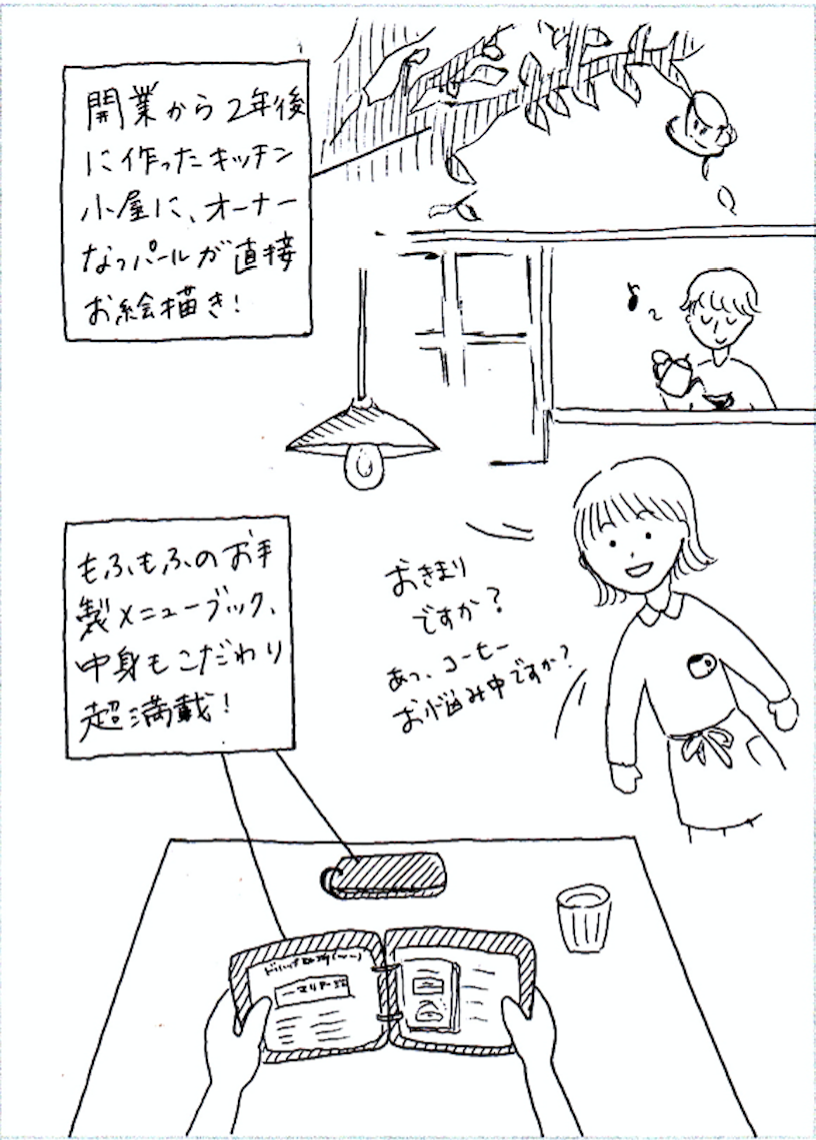 開業から2年後
に作ったキッチン
小屋に、オーナー
なっパールが直接
お絵描き!
もふもふのお手
製メニューブック、
中身もこだわり
超満載!
おきまり
ですか?
あっ、コーヒー
お悩み中ですか?